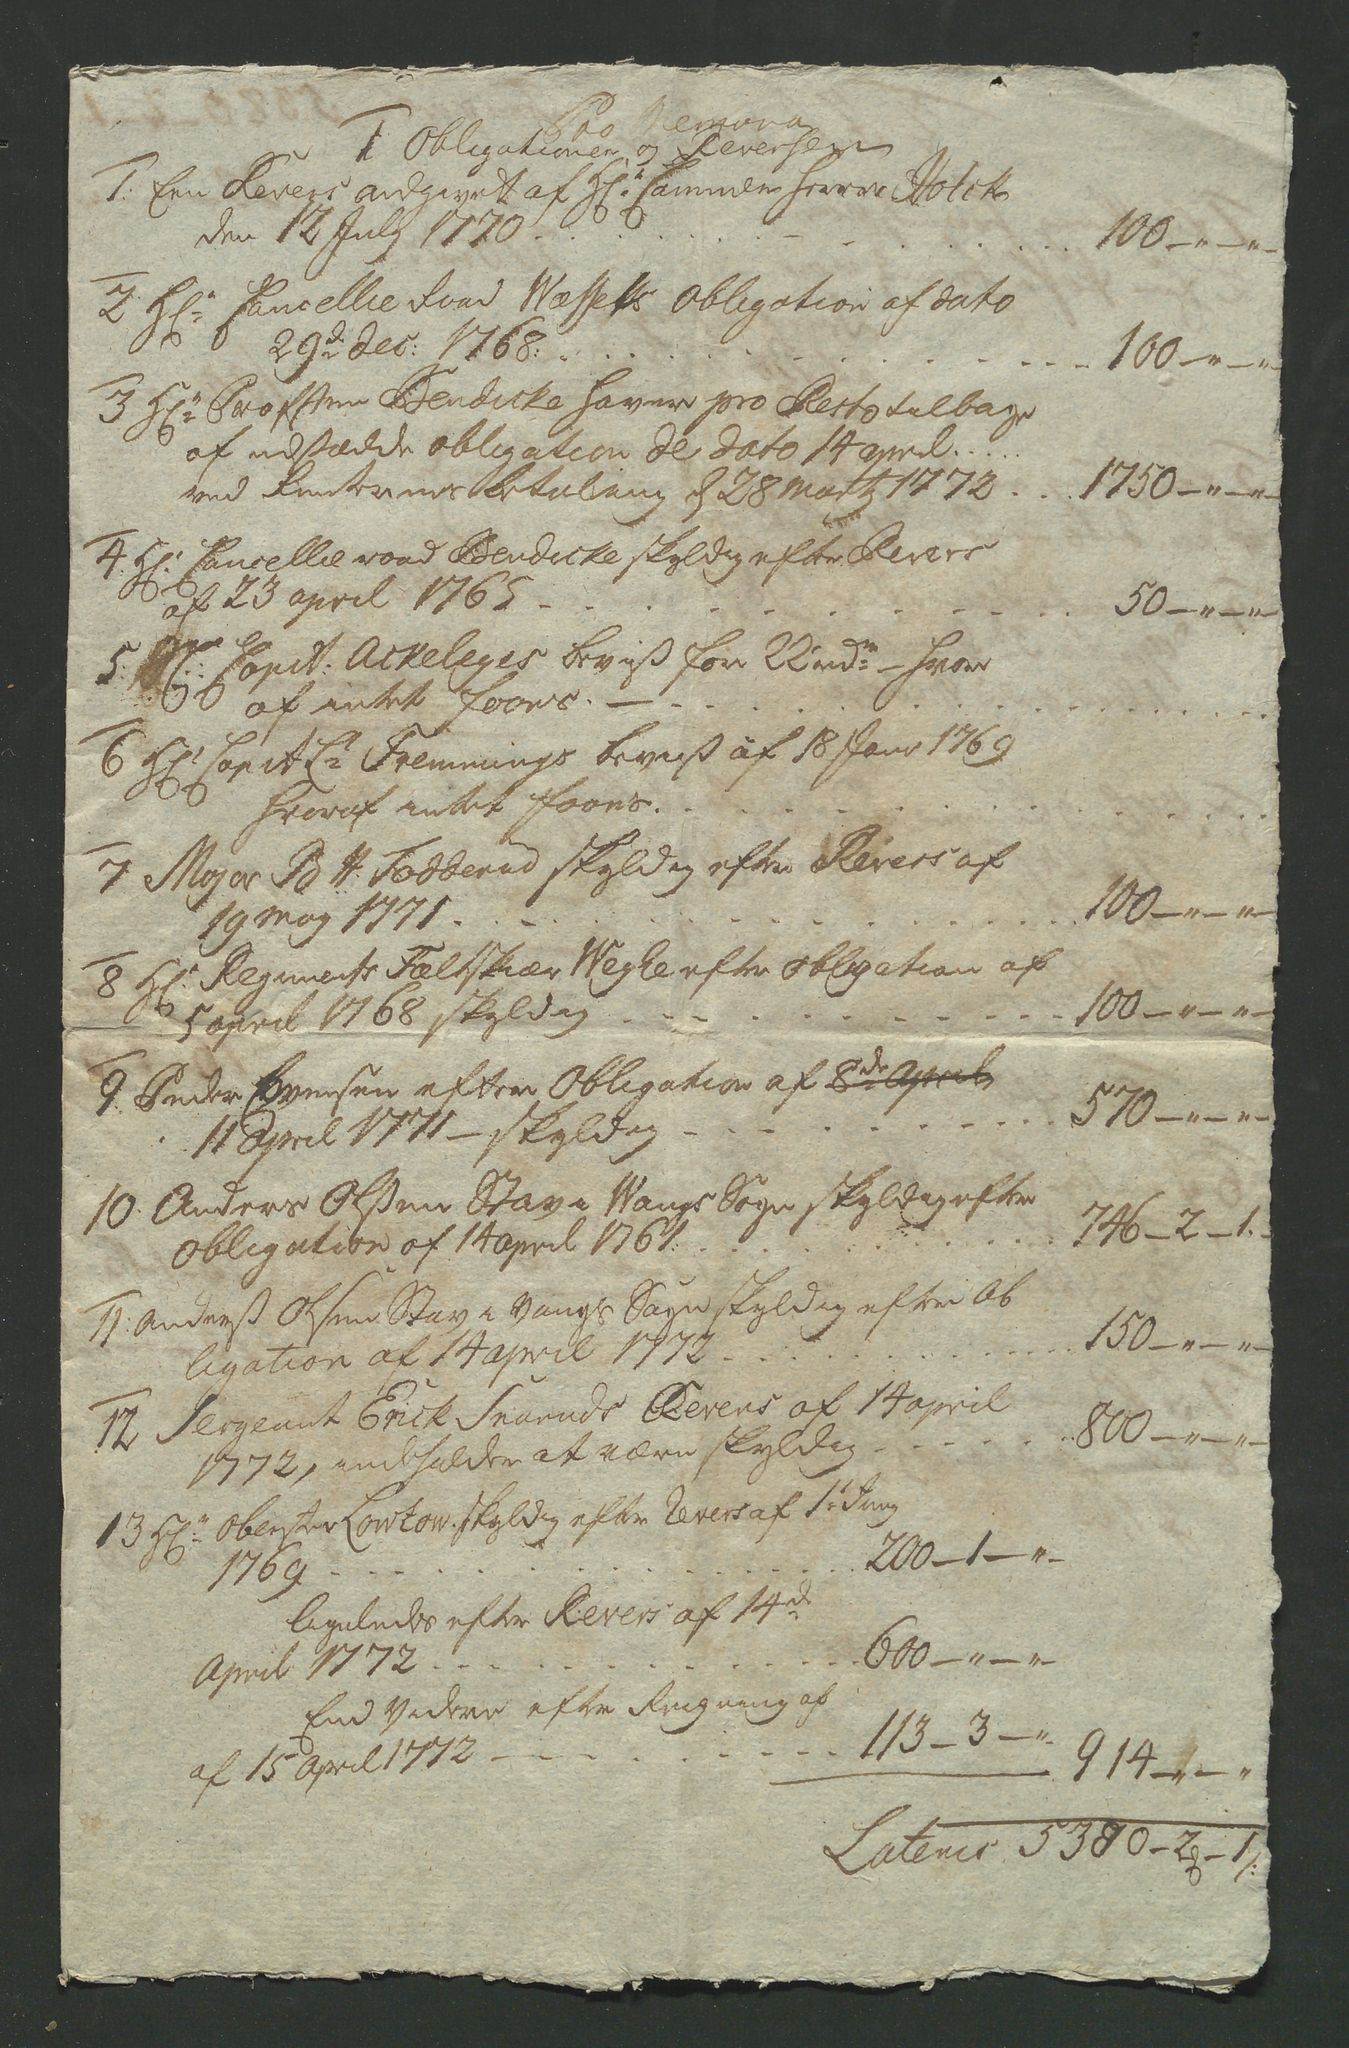 Pro Memoria
I Obligationer og Reverser
1. Een Revers udgivett af Hr: Cammer Herre Holck
den 12 July 1770 100 — " — " —
2. Hr: Cancellie Raad Wessells obligation af dato
29de dec: 1768: 100 — " — "
3 Hr: Profsten Bendicke haver pro Resto tilbage
af udstædde obligation de dato 14 april
ved Renternes betaling d 28 Martz 1772 1750 — " — " —
4. Hr: Cancellie raad Bendicke skyldig efter Revers
af 23 april 1765 50 — " — " —
5. Hr: Capit: Ackeleyes beviß for 22 rdr — hvor
af intet foores. —
6 Hr: Capit Fremmings beviß af 18 Janr 1769
hvoraf intet foores.
7 Major P H Todderud skyldig efter Revers af
19 may 1771 100 — " — " —
8 Hr: Regiments Feltskiær Weyhe efter obligation af
5 april 1768 skyldig 100 — " — " —
9. Peder Evensen efter Obligation af 8de April
11 April 1771 — skyldig 570 — " — " —
10. Anders Olssen Stav i Wangs Sogn skyldig efter
obligation af 14 april 1761: 746 — 2 — 1. —
11: Anderß Olsen Stav i Vangs Sogn skyldig efter Ob
ligation af 14 april 1772 150 — " — " —
12 Sergeant Erick Svends Revers af 14 april
1772, indholder at være skyldig 800 — " — " —
13 Hr: Oberster Lowtzow skyldig efter Revers af 1te Juny
1769 200 — 1 — " —
ligeledes efter Revers af 14de
April 1772 600 — " — " —
End Videre efter Reigning af
af 15 April 1772 113 — 3 — " 914 — " — "
Lateris 5380 — 2 — 1